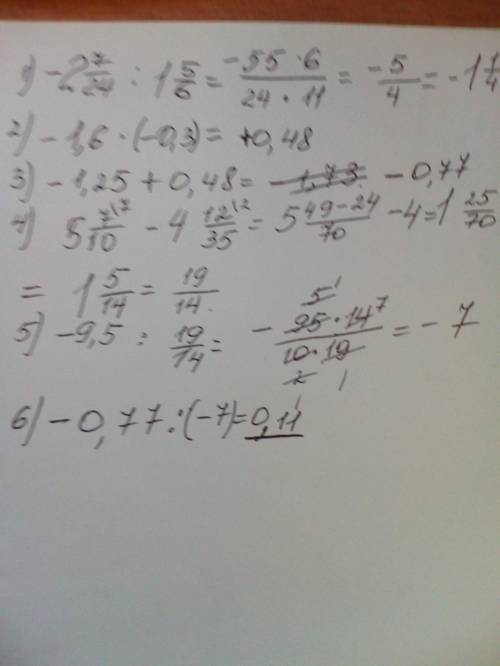 1) -2 7/24 : 1 5/6 = -55·6/24·11 = -5/4 = -1 1/4
2) -1,6 · (-0,3) = +0,48
3) -1,25 + 0,48 = -1,73. -0,77
4) 5 7/10 - 4 12/35 = 5 49-24/70 - 4 = 1 25/70
= 1 5/14 = 19/14.
5) -9,5 : 19/14 = - 95·14/10·19 = -7
6) -0,77 : (-7) = 0,11